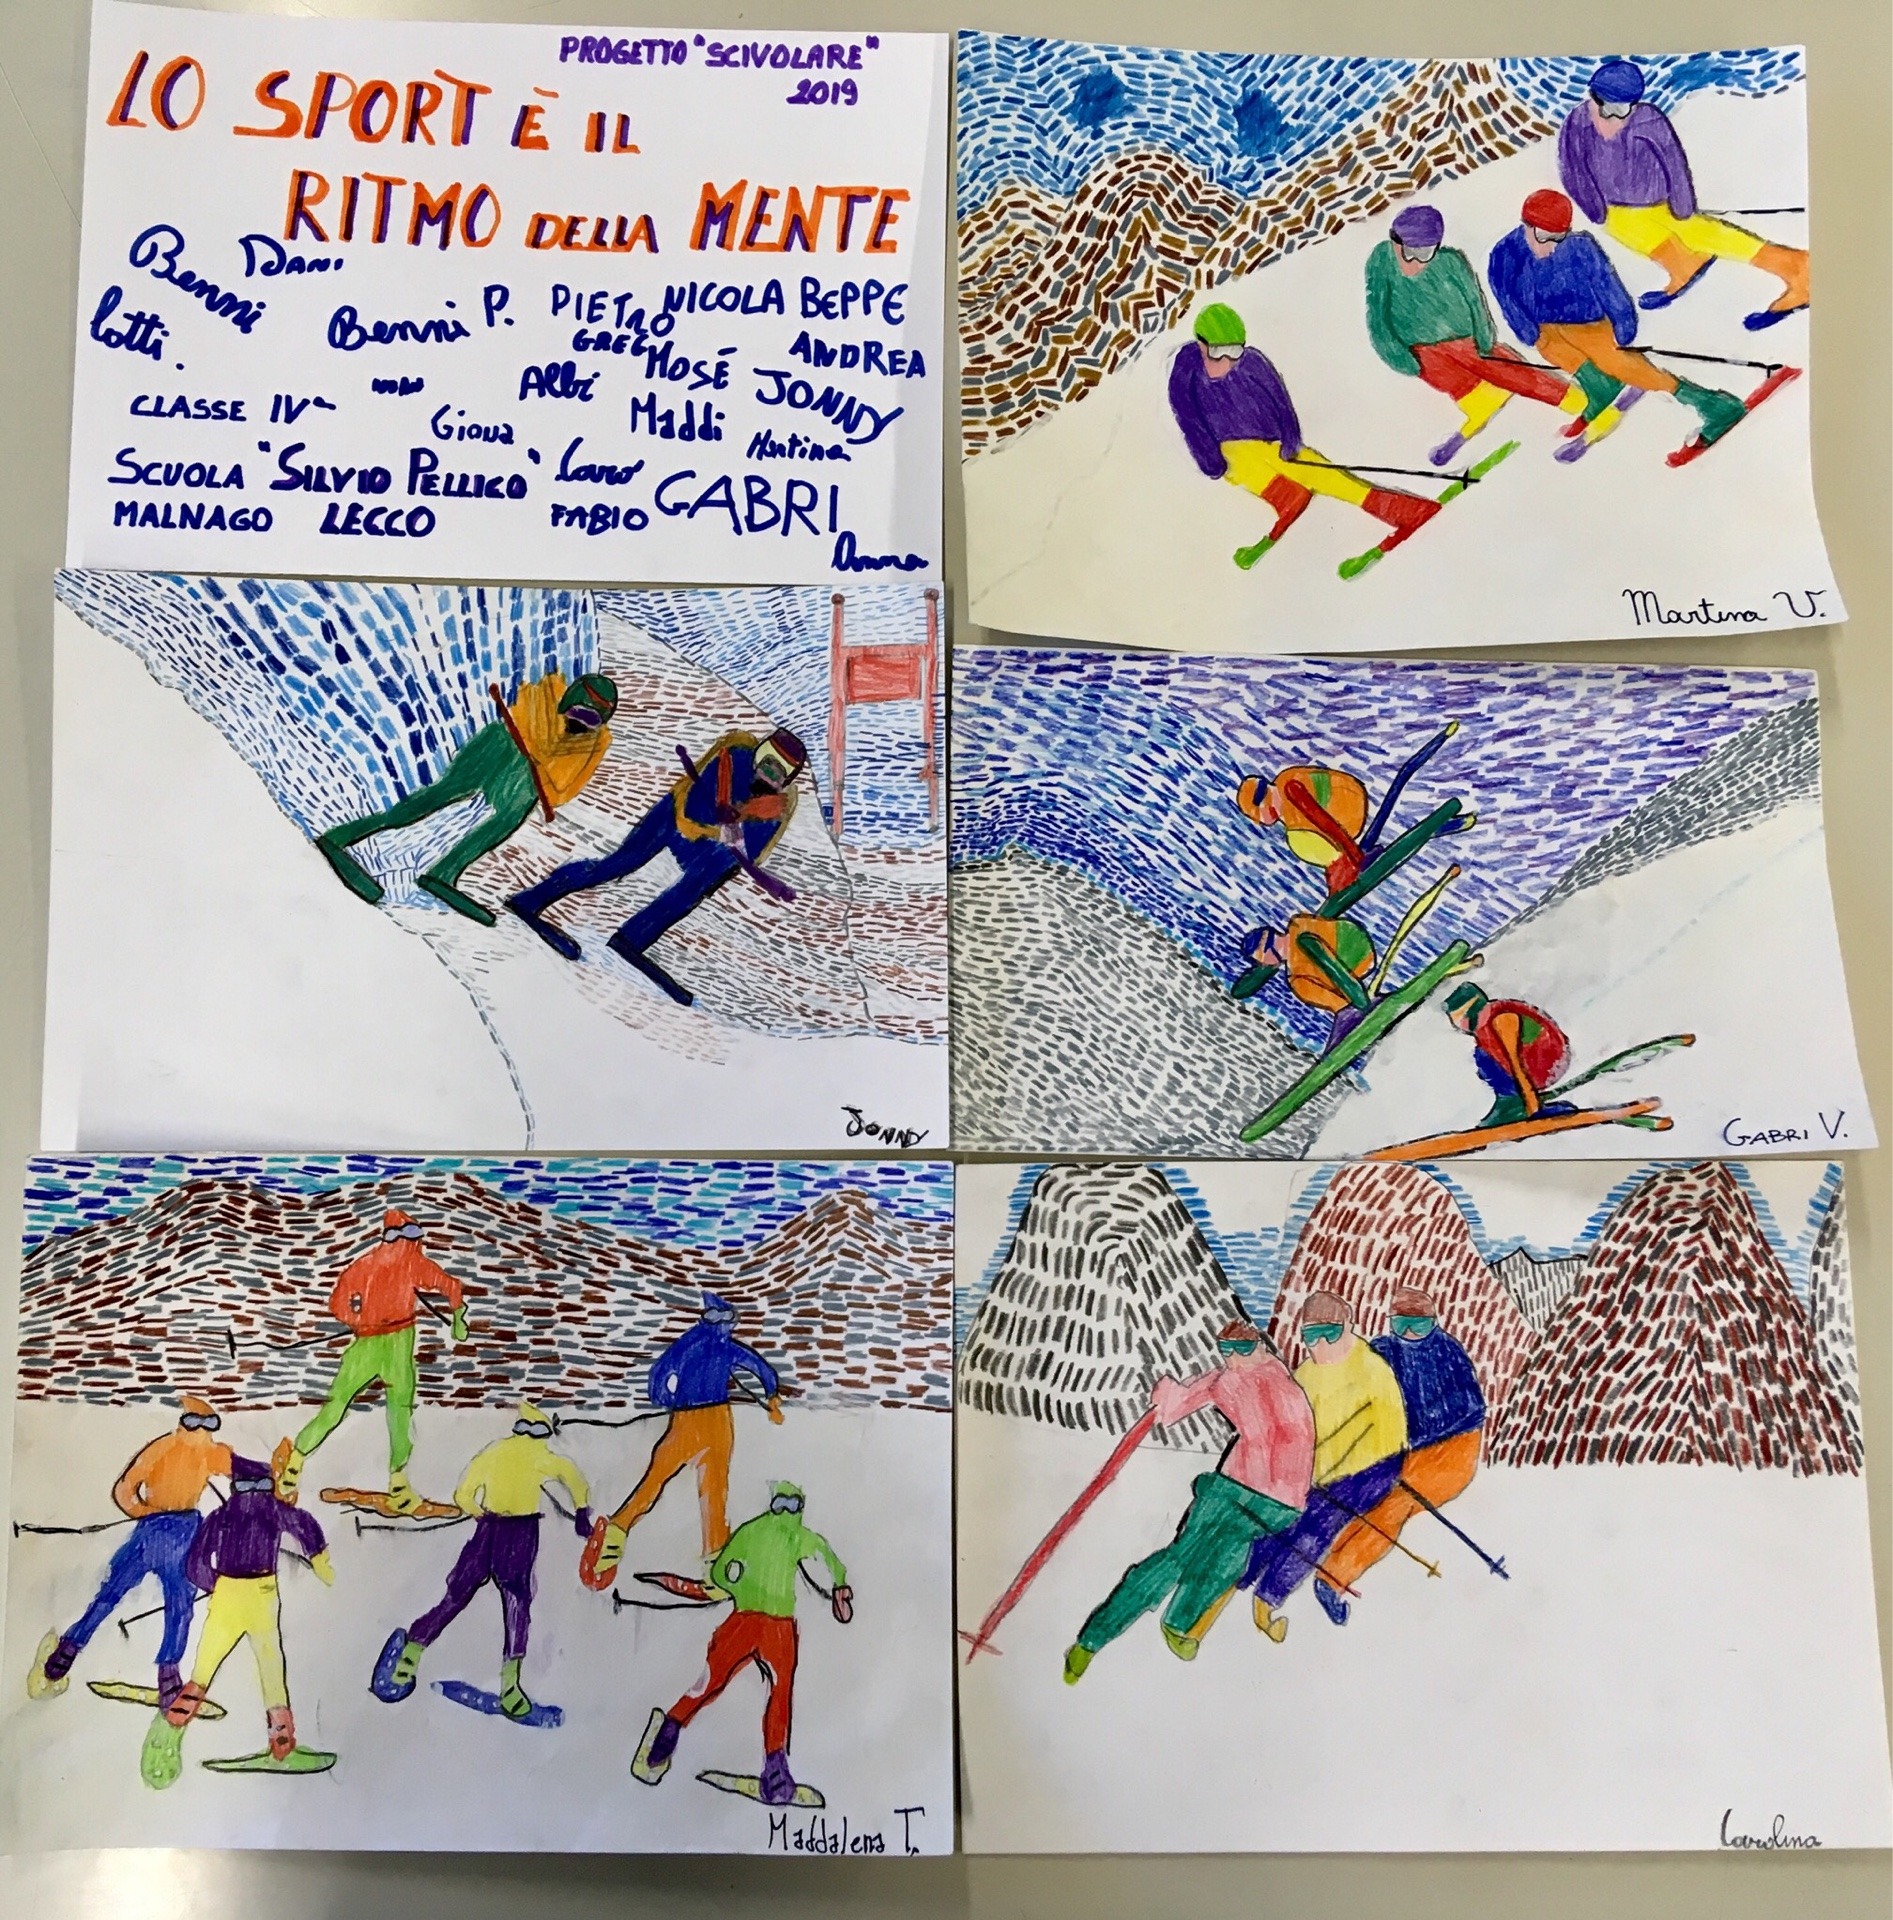 PROGETTO "SCIVOLARE"
2019
LO SPORT È IL
RITMO DELLA MENTE
Benni Dani
Benni P. PIETRO NICOLA BEPPE
lotti. GREG MOSÉ ANDREA
Albi JONNY
CLASSE IVª Giova Maddi Martina
SCUOLA "SILVIO PELLICO" Caro GABRI
MALNAGO LECCO FABIO
Martina V.
JONNY
GABRI V.
Maddalena T.
Carolina